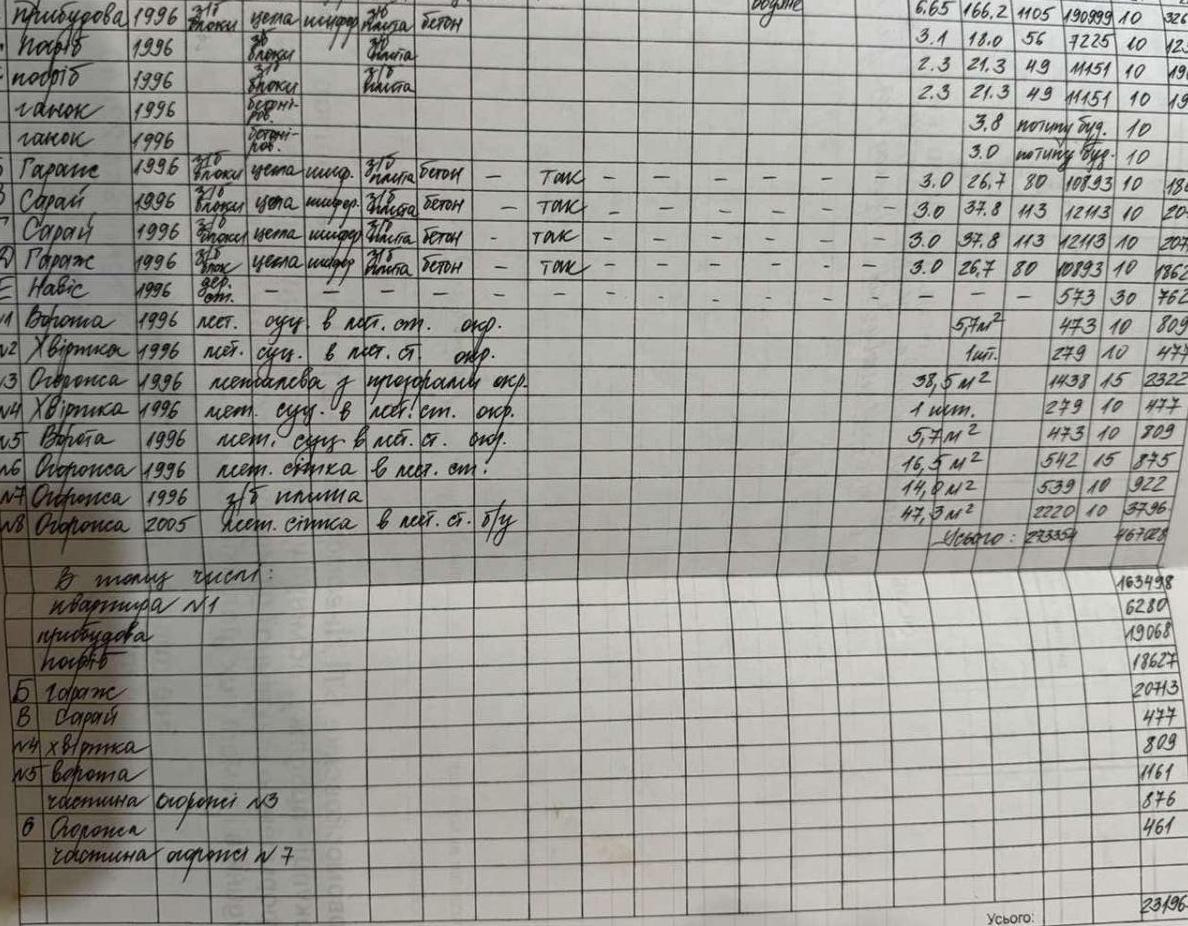 прибудова 1996 з/б блоки цегла шифер з/б плита бетон 6.65 166.2 1105 190999 10 326
погріб 1996 з/б блоки з/б плита 3.1 18.0 56 7225 10 123
погріб 1996 з/б блоки з/б плита 2.3 21.3 49 11151 10 190
ганок 1996 бетоні-ров. 2.3 21.3 49 11151 10 19
ганок 1996 бетоні-ров. 3.8 по типу буд. 10
3.0 по типу буд. 10
Гараж 1996 з/б блоки цегла шиф. з/б плита бетон – так – – – – – – – 3.0 26,7 80 10893 10 186
Сарай 1996 з/б блоки цегла шифер. з/б плита бетон – так – – – – – – – 3.0 37.8 113 12113 10 20
Г Сарай 1996 з/б блоки цегла шифер з/б плита бетон – так – – – – – – – 3.0 37.8 113 12113 10 207
Д Гараж 1996 з/б блок цегла шифер з/б плита бетон – так – – – – – – – 3.0 26,7 80 10893 10 1862
Е Навіс 1996 дер. ст. – – – – – – – – – – – – – – – – 573 30 762
№1 Ворота 1996 мет. суц. в мет. ст. окр. 5,7м² 473 10 809
№2 Хвіртка 1996 мет. суц. в мет. ст. окр. 1шт. 279 10 477
№3 Огорожа 1996 металева з прозорами окр. 38,5м² 1438 15 2322
№4 Хвіртка 1996 мет. суц. в мет. ст. окр. 1 шт. 279 10 477
№5 Ворота 1996 мет. суц. в мет. ст. окр. 5,7м² 473 10 809
№6 Огорожа 1996 мет. сітка в мет. ст. 16,5м² 542 15 875
№7 Огорожа 1996 з/б плита 14,0м² 539 10 922
№8 Огорожа 2005 мет. сітка в мет. ст. б/у 47,3м² 2220 10 3796
Усього: 273354 467028
В тому числі:
квартира №1 163498
прибудова 6280
погріб 19068
Б гараж 18627
В Сарай 20713
№4 хвіртка 477
№5 ворота 809
частина огорожі №3 1161
6 Огорожа 876
частина огорожі №7 461
Усього: 23196